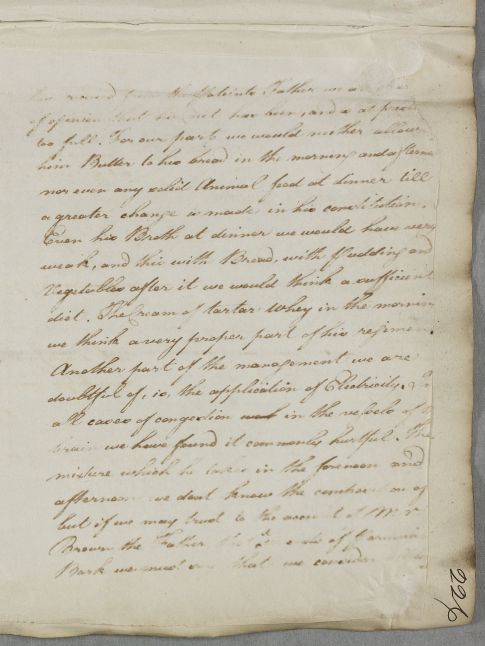 has received from the Patients Father we
of opinion that his diet has been, and is at present
too full. For our part we would neither allow
him Butter to his bread in the morning and afternoon
nor even any solid Animal food at dinner till
a greater change is made in his constitution.
Even his Broth at dinner we would have very
weak, and this with Bread, with Pudding and
Vegetables after it we would think a sufficient
diet. The Cream of tartar Whey in the morning
we think a very proper part of his regimen.
Another part of the management we are
doubtful of, is, the application of Electricity. In
all cases of congestion in the vessels of
brain we have found it commonly hurtful. The
mixture which he takes in the forenoon and
afternoon we dont know the composition of
but if we may trust to the account of Mr
Brown the Father that it of
Bark we must say that we consider
224